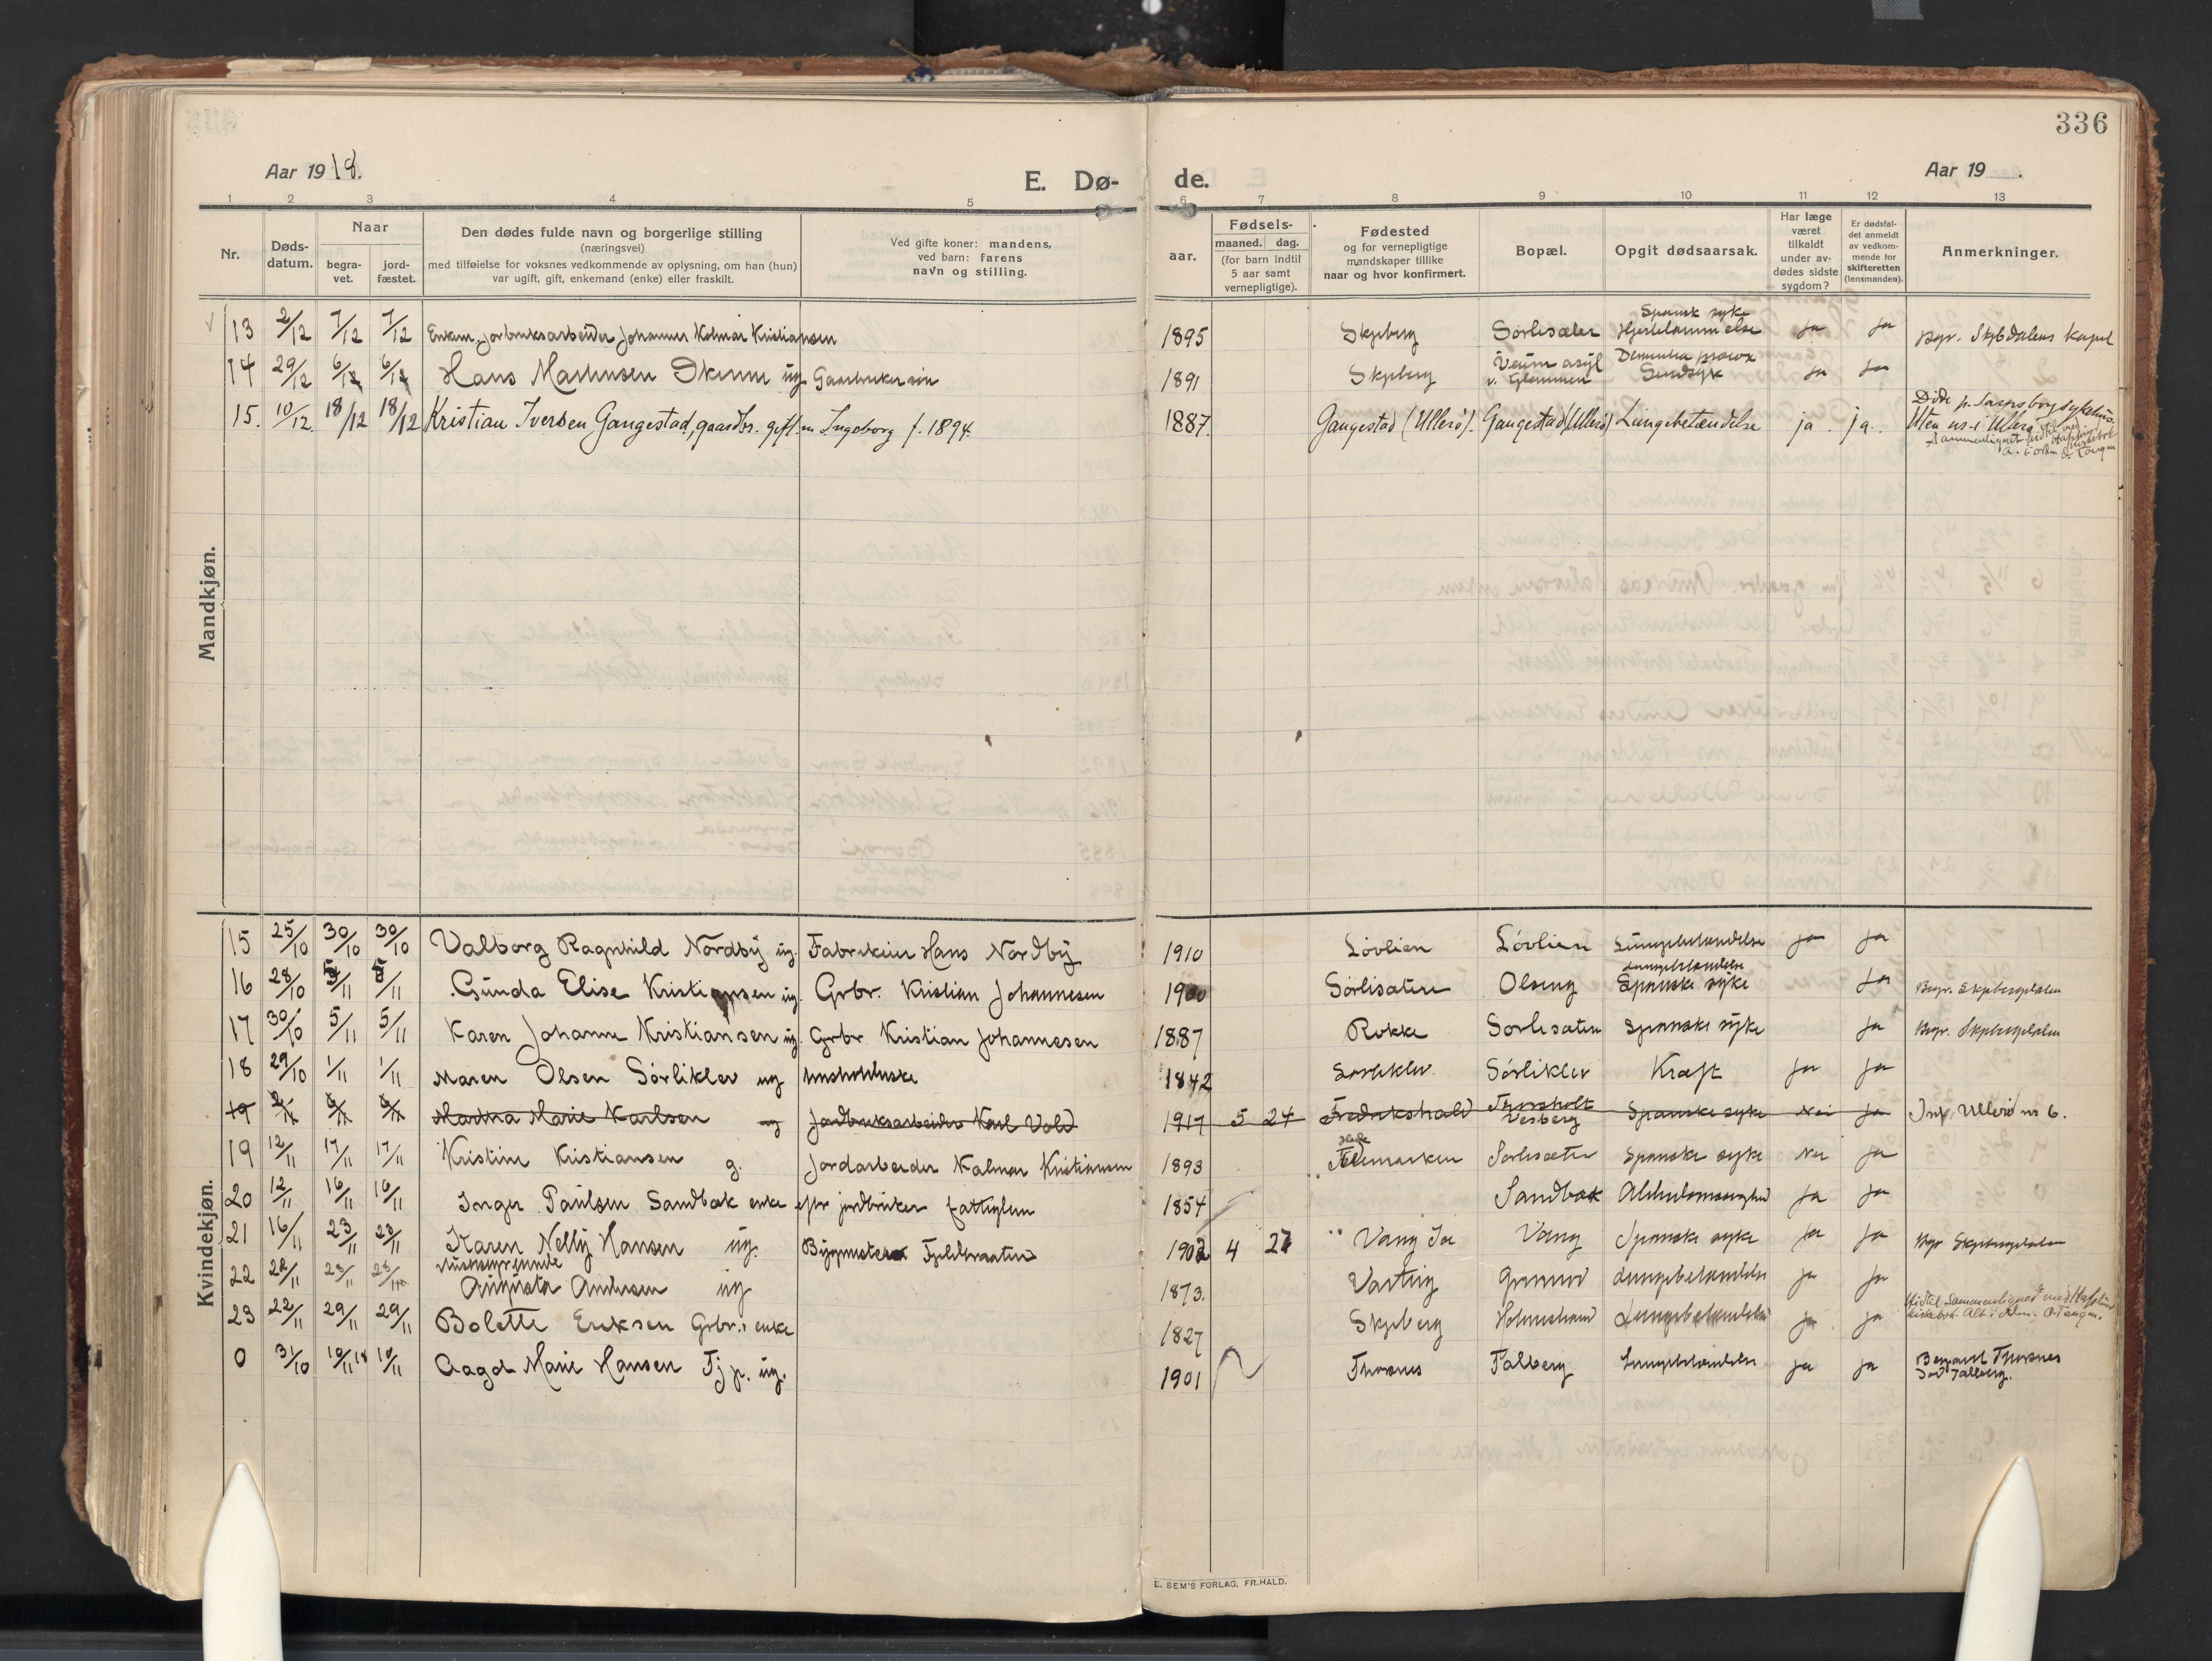 336
Aar 1918.
E. Dø-
de.
Aar 19 .
1 2 3 4 5 6 7 8 9 10 11 12 13
Nr.
Døds-
datum.
Naar
begra-
vet.
jord-
fæstet.
Den dødes fulde navn og borgerlige stilling
(næringsvei)
med tilføielse for voksnes vedkommende av oplysning, om han (hun)
var ugift, gift, enkemand (enke) eller fraskilt.
Ved gifte koner: mandens,
ved barn: farens
navn og stilling.
Fødsels-
aar.
maaned. dag.
(for barn indtil
5 aar samt
vernepligtige).
Fødested
og for vernepligtige
mandskaper tillike
naar og hvor konfirmert.
Bopæl.
Opgit dødsaarsak.
Har læge
været
tilkaldt
under av-
dødes sidste
sygdom?
Er dødsfal-
det anmeldt
av vedkom-
mende for
skifteretten
(lensmanden).
Anmerkninger.
Mandkjøn.
13 2/12 7/12 7/12 Enkem. jorbruksarbeider Johannes Kolmar Kristiansen 1895 Skjeberg Sørlisæter Spansk syke Hjertelammelse ja ja Begr. Skjebdalens kapel
14 29/12 6/12 6/12 Hans Martinsen ug Gaarbruker 1891 Skjeberg Veum asyl v. Glemmen Dementia Sindsyk ja ja
15. 10/12 18/12 18/12 Kristian Iversen Gangestad, gaardbr. gift m Ingeborg f. 1894. 1887. Gangestad (Ullerø). Gangestad (Ullerø) Lungebetændelse ja. ja.
Døde p. Sarpsborg sykehus.
Uten nr. i Ullerø.
Kvindekjøn.
15 25/10 30/10 30/10 Valborg Ragnhild Nordby ug. Fabrikeier Hans Nordby 1910 Løvlien Løvlien Lungebetændelse ja ja
16 28/10 5/11 5/11 Gunda Elise Kristiansen ug. Grbr. Kristian Johannesen 1900 Sørlisæter Olseng Lungebetændelse Spanske syke ja Begr. Skjebergdalen
17 30/10 5/11 5/11 Karen Johanne Kristiansen ug. Grbr. Kristian Johannesen 1887 Rokke Sørlisæter Spanske syke ja Begr. Skjebergdalen
18 29/10 1/11 1/11 Maren Olsen Sørliklev ug 1842 Sørliklev Sørliklev Kræft ja ja
19 Martha Marie Karlsen ug Jordbruksarbeider Karl Vold 1917 5 24 Fredrikshald Thorsholt Vesberg Spanske syke Nei ja Inf. Ullerø nr 6.
19 12/11 17/11 17/11 Kristine Kristiansen g. Jordarbeider Kalmar Kristiansen 1893 Sørlisæter Spanske syke Nei ja
20 12/11 16/11 16/11 Inger Paulsen Sandbæk enke efter jordbruker fattiglem 1854 Sandbæk ja ja
21 16/11 23/11 23/11 Karen Nelly Hansen ug. Bygmester 1902 4 27 Vang Vang Spanske syke ja ja Begr Skjebergdalen
22 22/11 23/11 Husbestyrerinde Augusta Andersen ug 1873. Varteig Lungebetændelse ja ja
23 22/11 29/11 29/11 Bolette Eriksen Grbr.s enke 1827 Skjeberg Holmestrand Lungebetændelse ja ja
Hidtil sammenlignet med Hafslund kirkebok. Alt i orden. O. Tangen.
0 31/10 10/11 18 10/11 Aagot Marie Hansen Tj p. ug. 1901 Thorsnes Falberg Lungebetændelse ja ja Begravet Thorsnes
E. SEM'S FORLAG, FR.HALD.